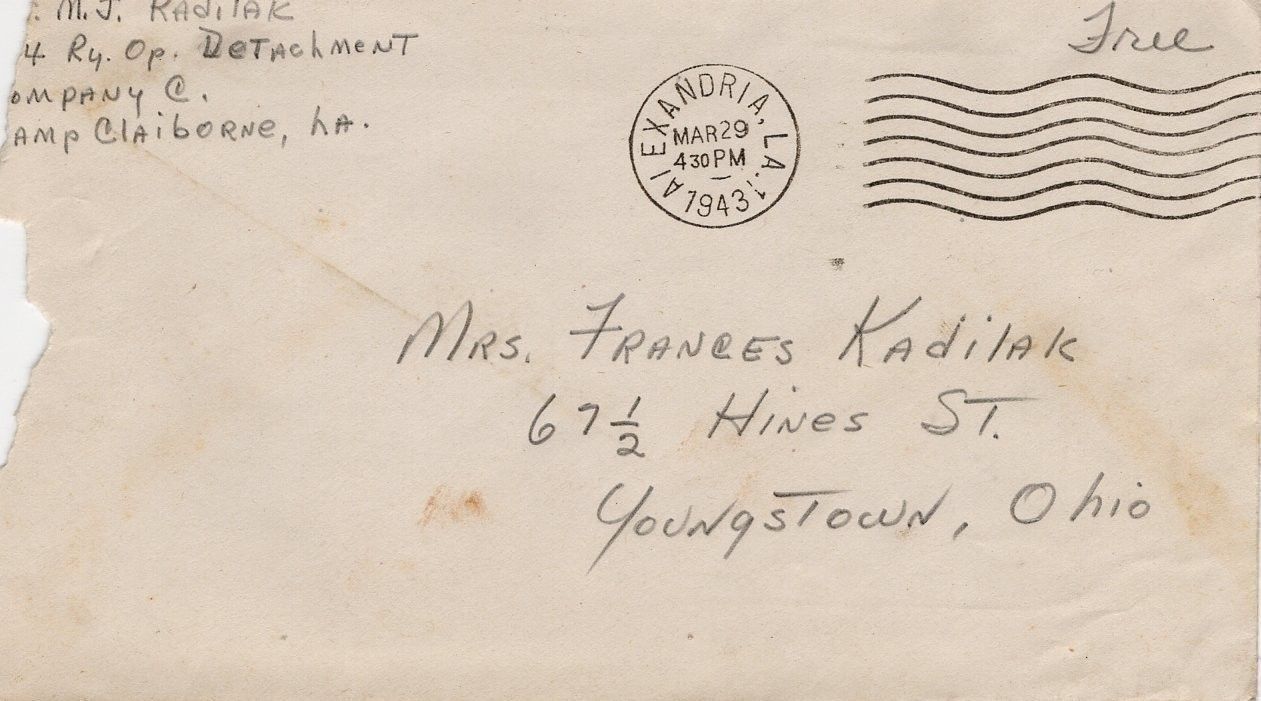 . M.J. KAdilAK
4 Ry. Op. DeTAchmeNT
ompANy C.
Amp ClAiborNe, LA.
Free
ALEXANDRIA, LA. 1
MAR 29
430 PM
1943
Mrs. FrANces KAdilAK
67 1/2 HiNes ST.
YouNgsTowN, Ohio